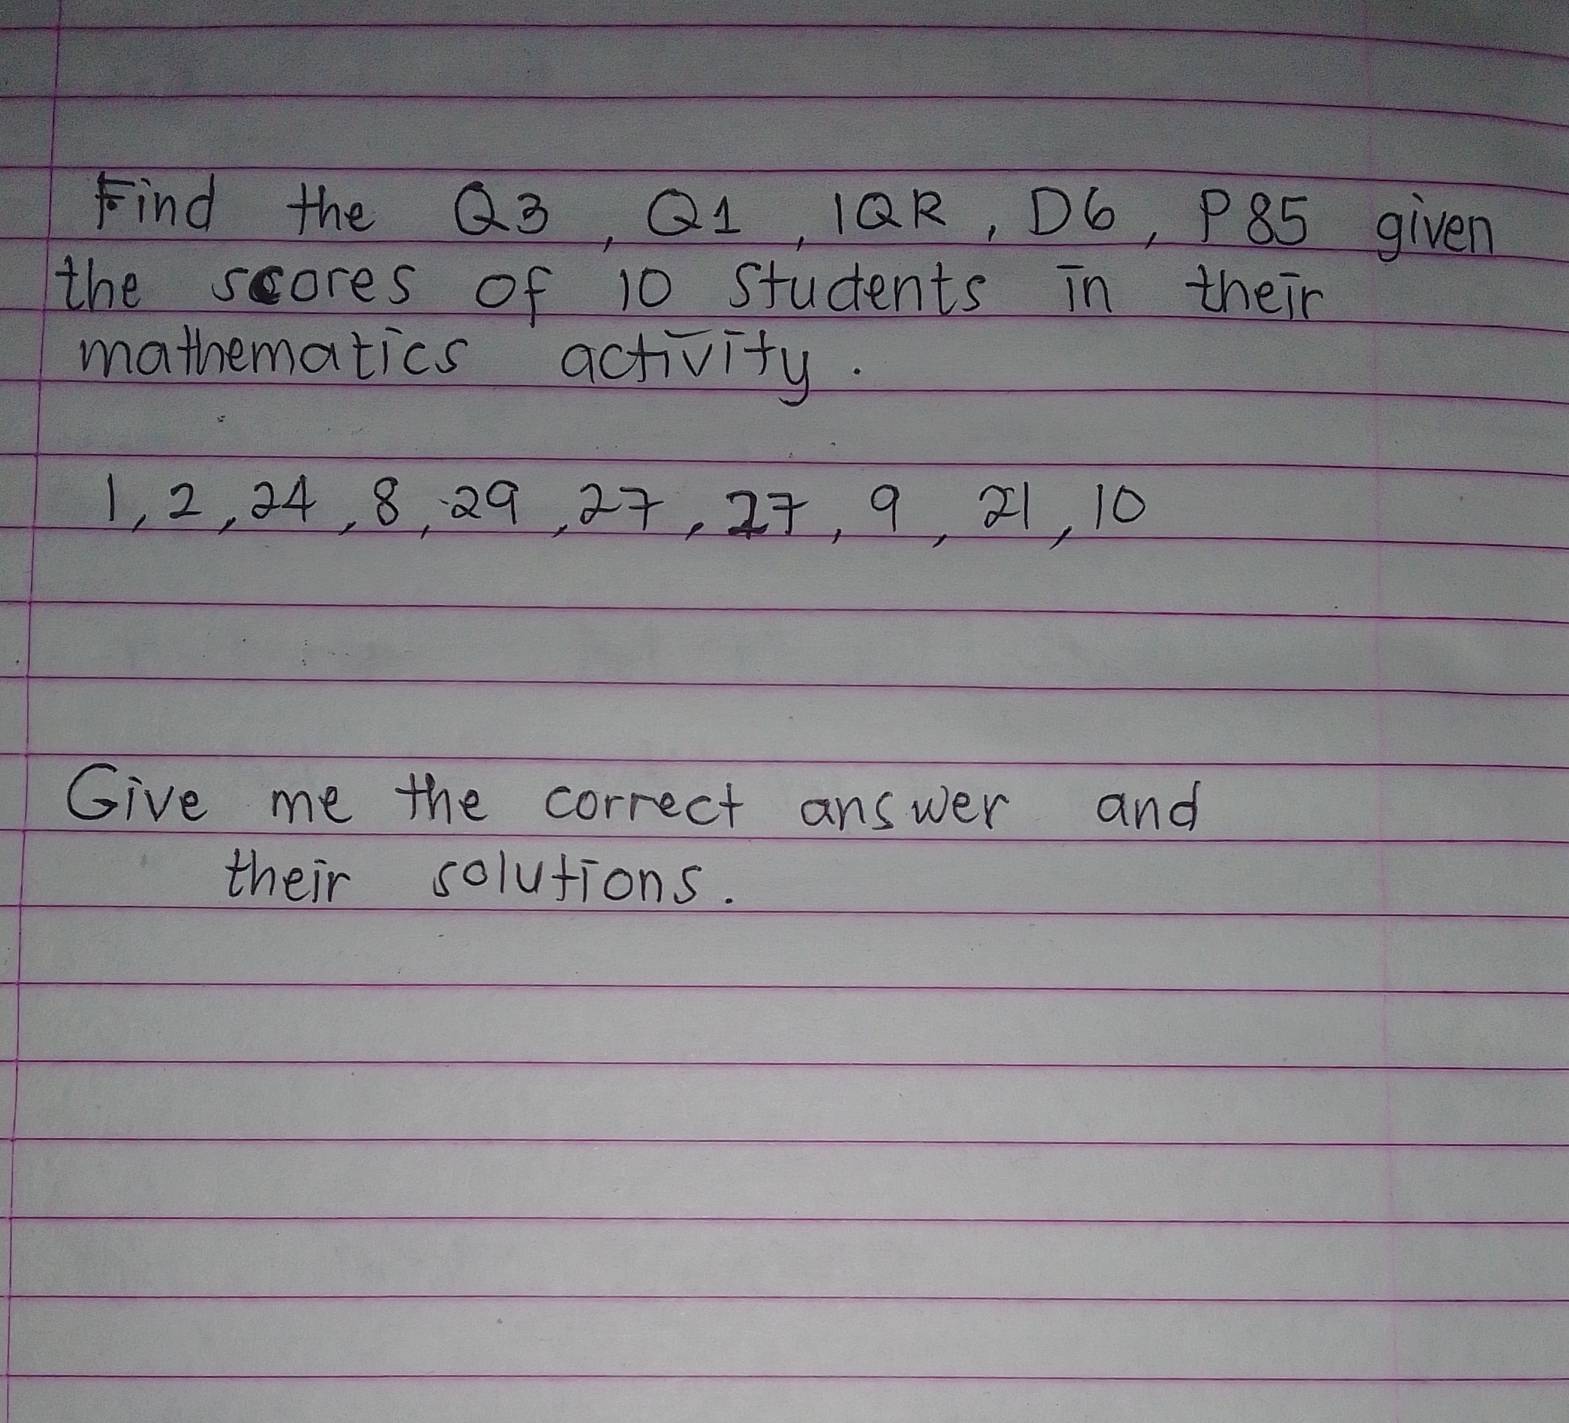 Find the Q3, Q1, IQR, D6, P85 given
the scores of 10 students in their
mathematics activity.
1, 2, 24, 8, 29, 27, 27, 9, 21, 10
Give me the correct answer and
their solutions.